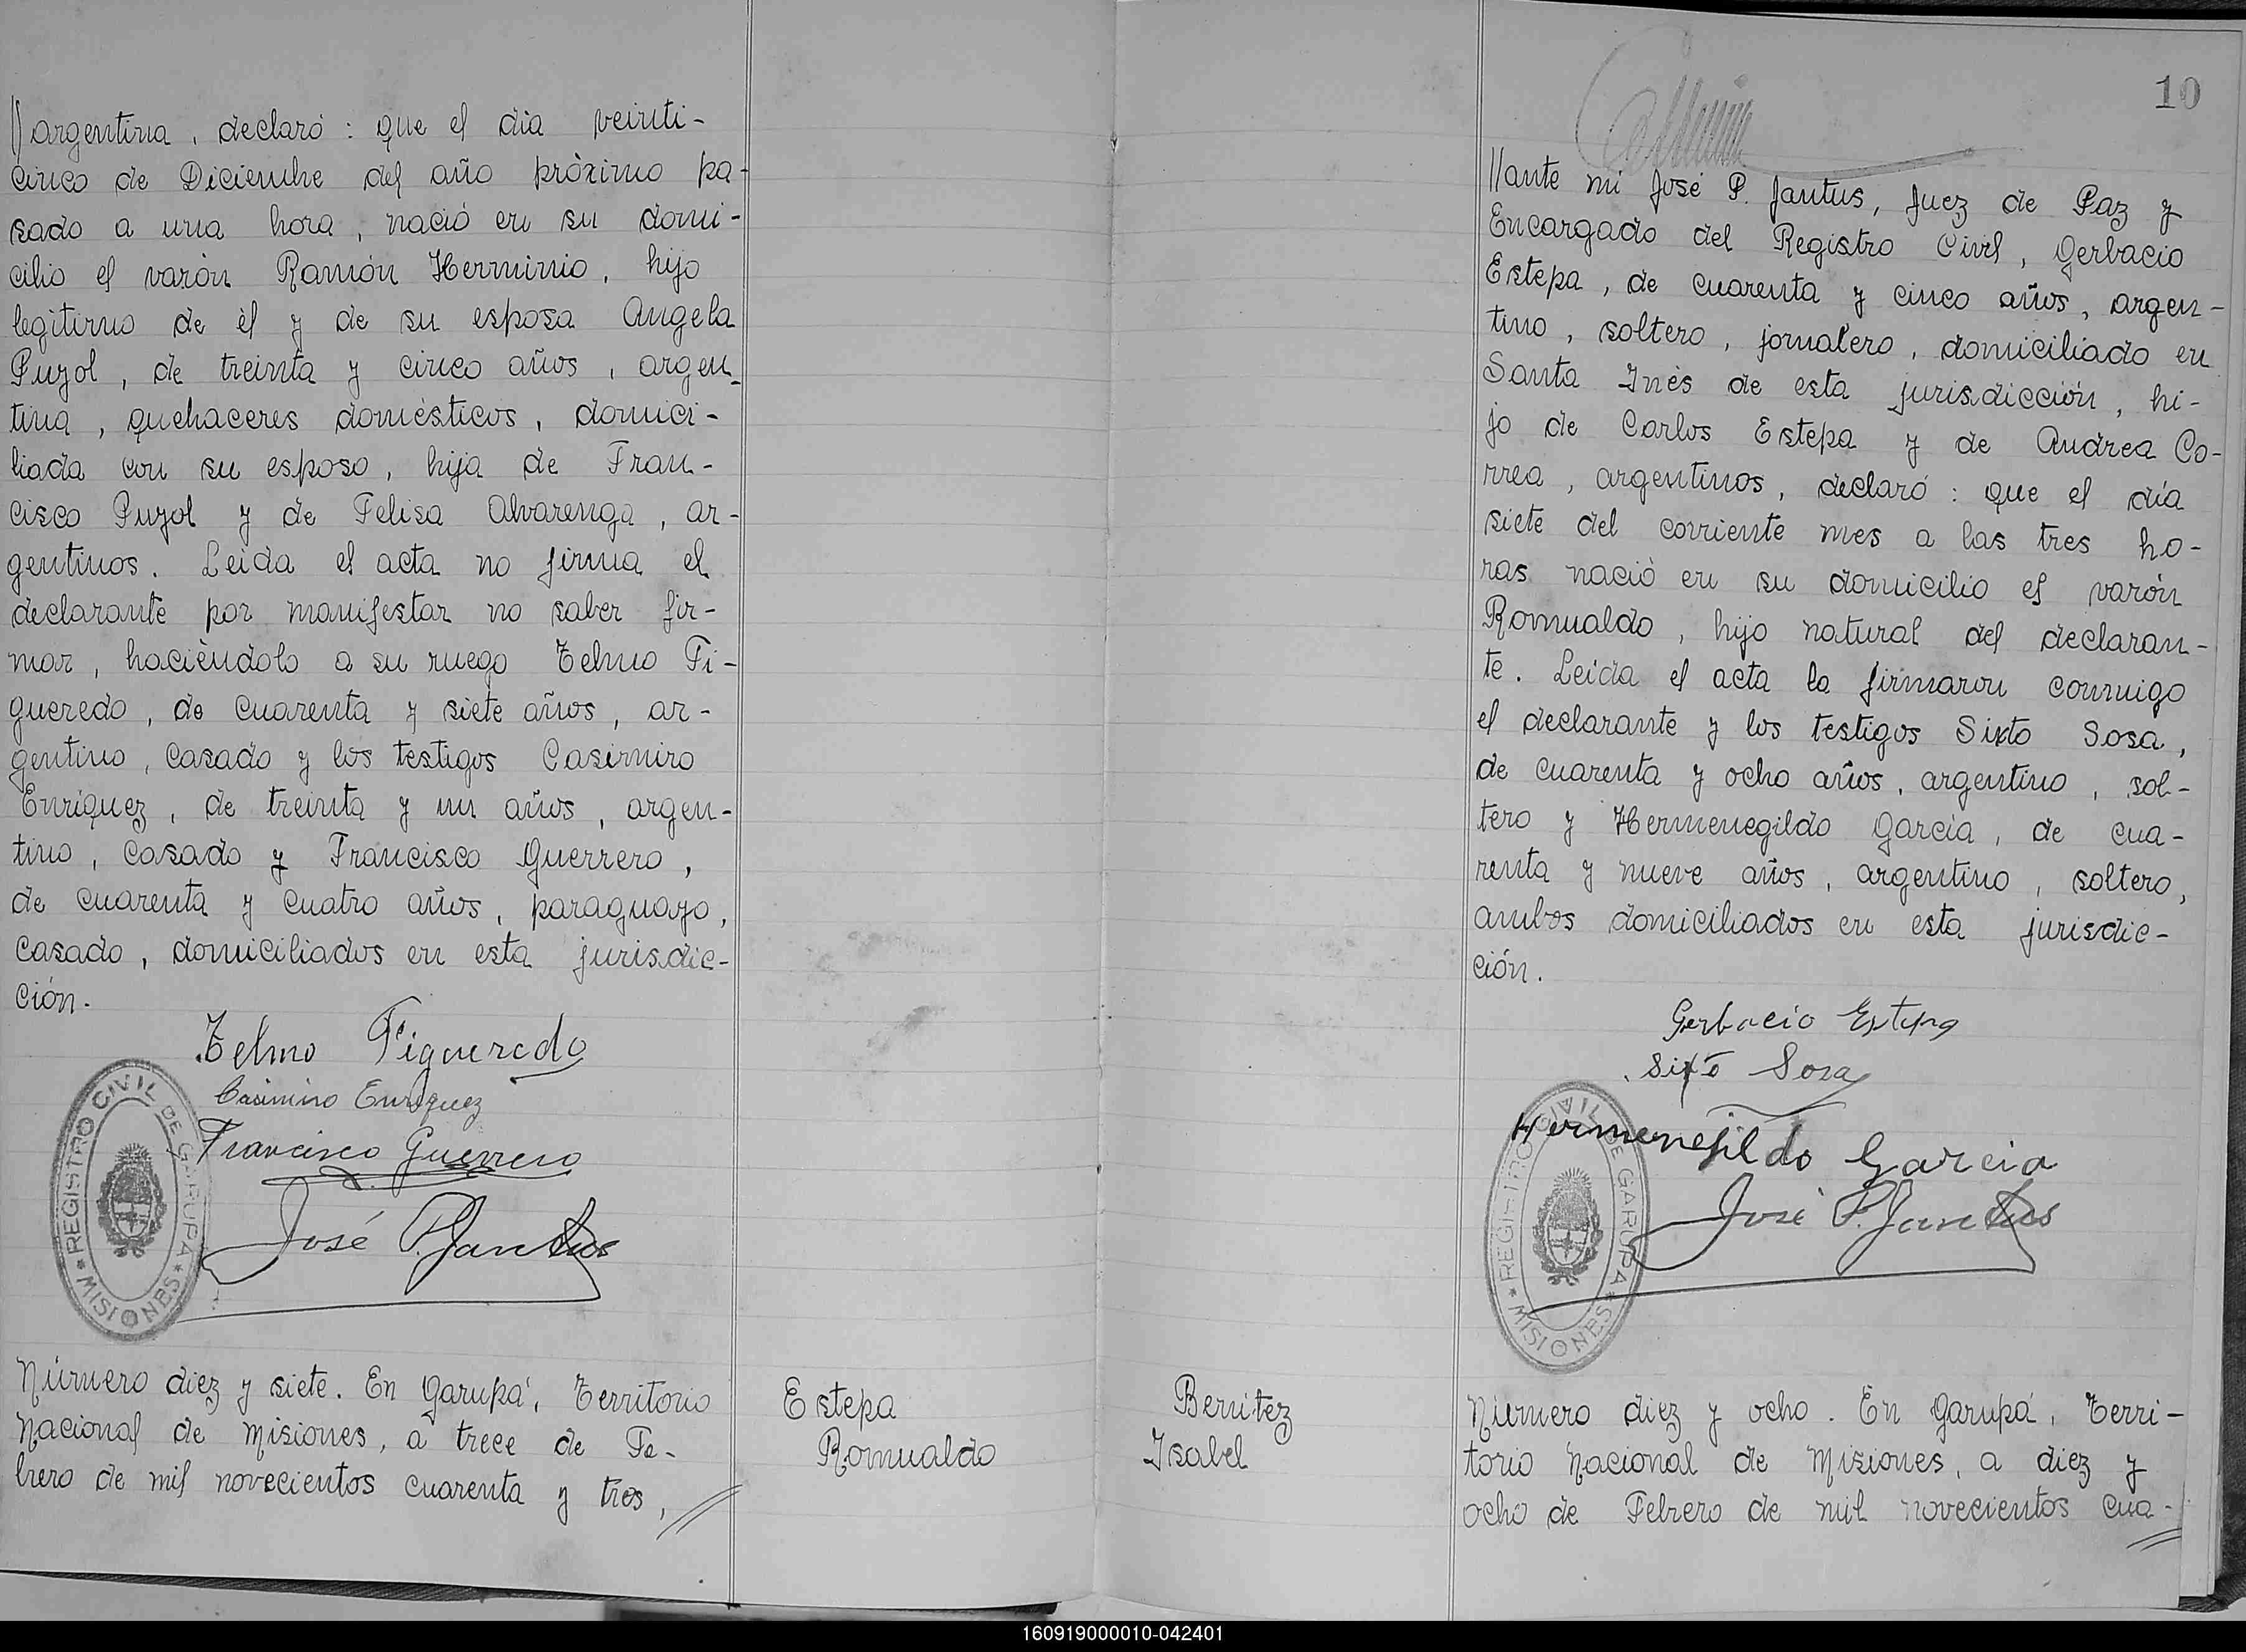 //argentina, declaró: que el día veinti-
cinco de Diciembre del año próximo pa-
sado a una hora, nació en su domi-
cilio el varón Ramón Herminio, hijo
legitimo de él y de su esposa Angela
Puyol, de treinta y cinco años, argen-
tina, quehaceres domésticos, domici-
liada con su esposo, hija de Fran-
cisco Puyol y de Felisa Alvarenga, ar-
gentinos. Leida el acta no firma el
declarante por manifestar no saber fir-
mar, haciéndolo a su ruego Telmo Fi-
gueredo, de cuarenta y siete años, ar-
gentino, casado y los testigos Casimiro
Enriquez, de treinta y un años, argen-
tino, casado y Francisco Guerrero,
de cuarenta y cuatro años, paraguayo,
casado, domiciliados en esta jurisdic-
ción.
Telmo Figueredo
Casimiro Enriquez
Francisco Guerrero
José P. Jantus
REGISTRO CIVIL DE GARUPA
* MISIONES *
Número diez y siete. En Garupá, Territorio
Nacional de Misiones, a trece de Fe-
brero de mil novecientos cuarenta y tres, //
Estepa
Romualdo
10
//ante mi José P. Jantus, Juez de Paz y
Encargado del Registro Civil, Gerbacio
Estepa, de cuarenta y cinco años, argen-
tino, soltero, jornalero, domiciliado en
Santa Inés de esta jurisdicción, hi-
jo de Carlos Estepa y de Andrea Co-
rrea, argentinos, declaró: que el día
siete del corriente mes a las tres ho-
ras nació en su domicilio el varón
Romualdo, hijo natural del declaran-
te. Leida el acta la firmaron conmigo
el declarante y los testigos Sixto Sosa,
de cuarenta y ocho años, argentino, sol-
tero y Hermenegildo García, de cua-
renta y nueve años, argentino, soltero,
ambos domiciliados en esta jurisdic-
ción.
Gerbacio Estepa
Sixto Sosa
Hermenejildo Garcia
José P. Jantus
REGISTRO CIVIL DE GARUPA
* MISIONES *
Benitez
Isabel
Número diez y ocho. En Garupá, Terri-
torio Nacional de Misiones, a diez y
ocho de Febrero de mil novecientos cua- //
160919000010-042401